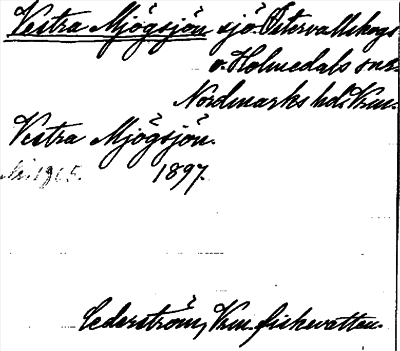 Vestra Mjögsjön sjö. Östervallskogs
o. Holmedals snr
Nordmarks hd. Vrm.
Vestra Mjögsjön.
1897.
Cederström, Vrm. fiskevatten.